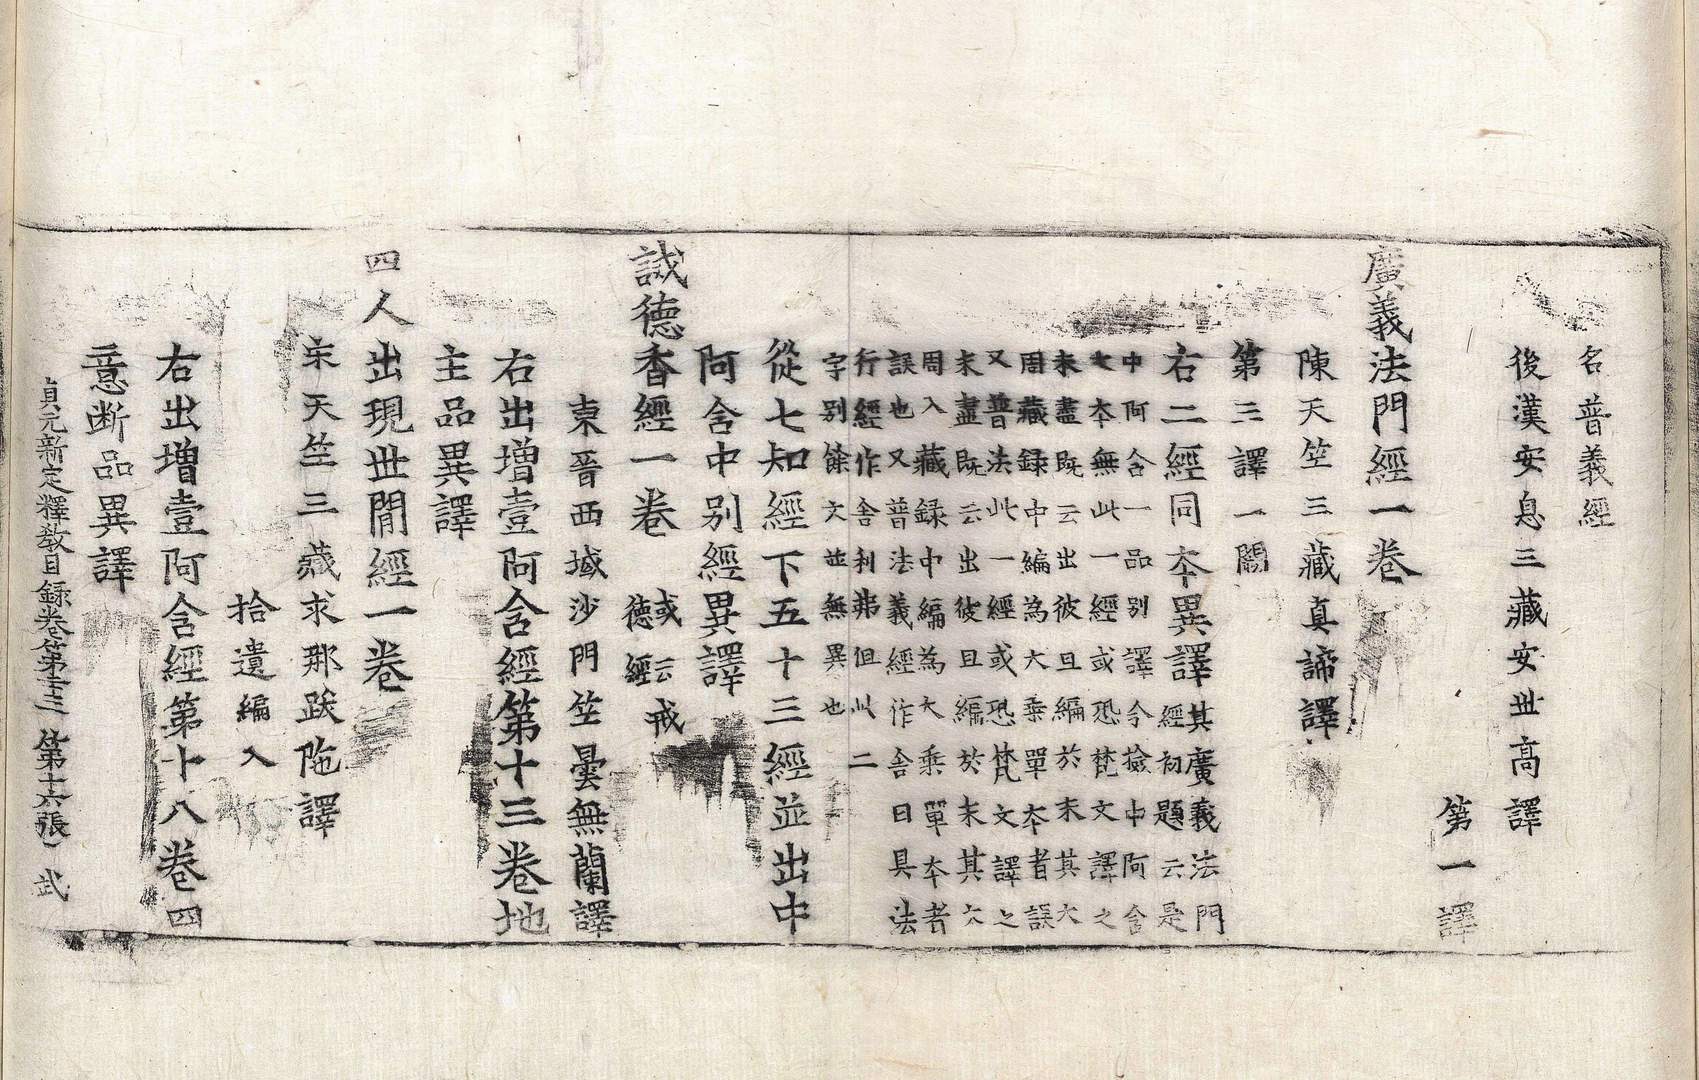 名普義經
後漢安息三藏安世高譯
第一譯
廣義法門經一卷
陳天竺三藏真諦譯
第三譯一闕
右二經同本異譯其廣義法門
經初題云是
中阿含一品别譯今撿中阿含
大本無此一經或恐梵文譯之
未盡既云出彼且編於末其大
周藏録中編為大乘單本者誤
又普法此一經或恐梵文譯之
未盡既云出彼且編於末其六
周入藏録中編為大乘單本者
誤也又普法義經作舍曰具法
行經作舍利弗但以二
字别餘文並無異也
從七知經下五十三經並出中
阿含中别經異譯
誡德香經一卷或云戒
德經
東晉西域沙門竺曇無蘭譯
右出増壹阿含經第十三卷地
主品異譯
四人出現世間經一卷
宋天竺三藏求那跋陁譯
拾遺編入
右出増壹阿含經第十八卷四
意断品異譯
貞元新定釋教目録卷第三十三 第十六張 武